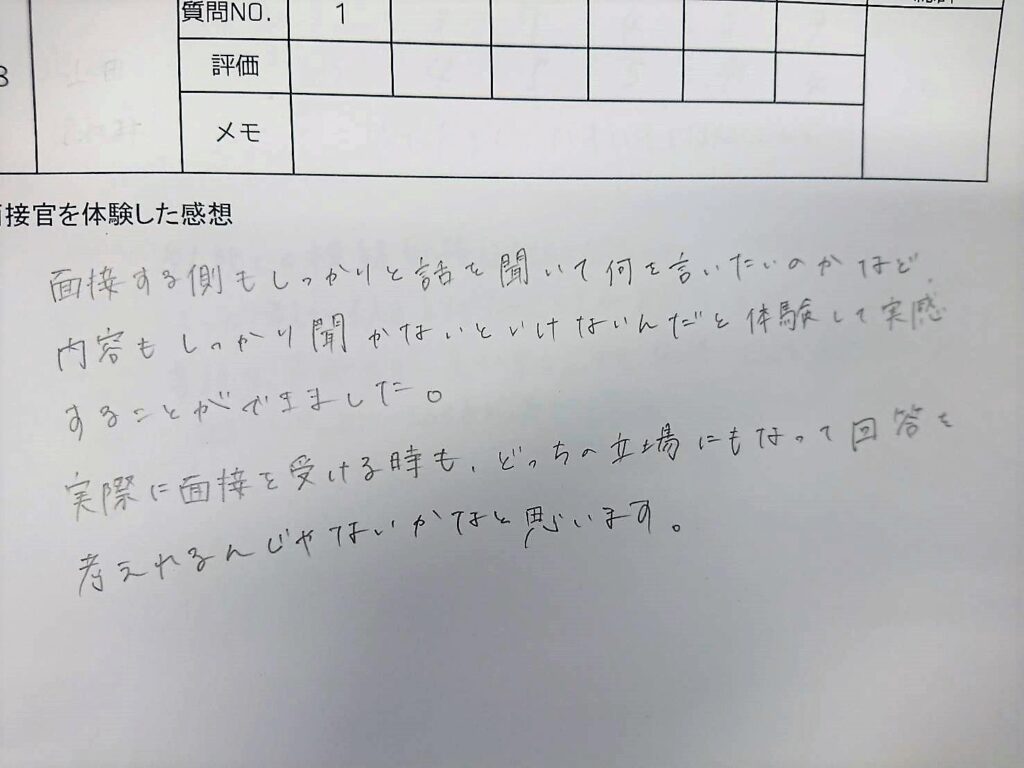 質問NO. 1
8
評価
メモ
接官を体験した感想
面接する側もしっかりと話を聞いて何を言いたいのかなど、
内容もしっかり聞かないといけないんだと体験して実感
することができました。
実際に面接を受ける時も、どっちの立場にもなって回答を
考えれるんじゃないかなと思います。